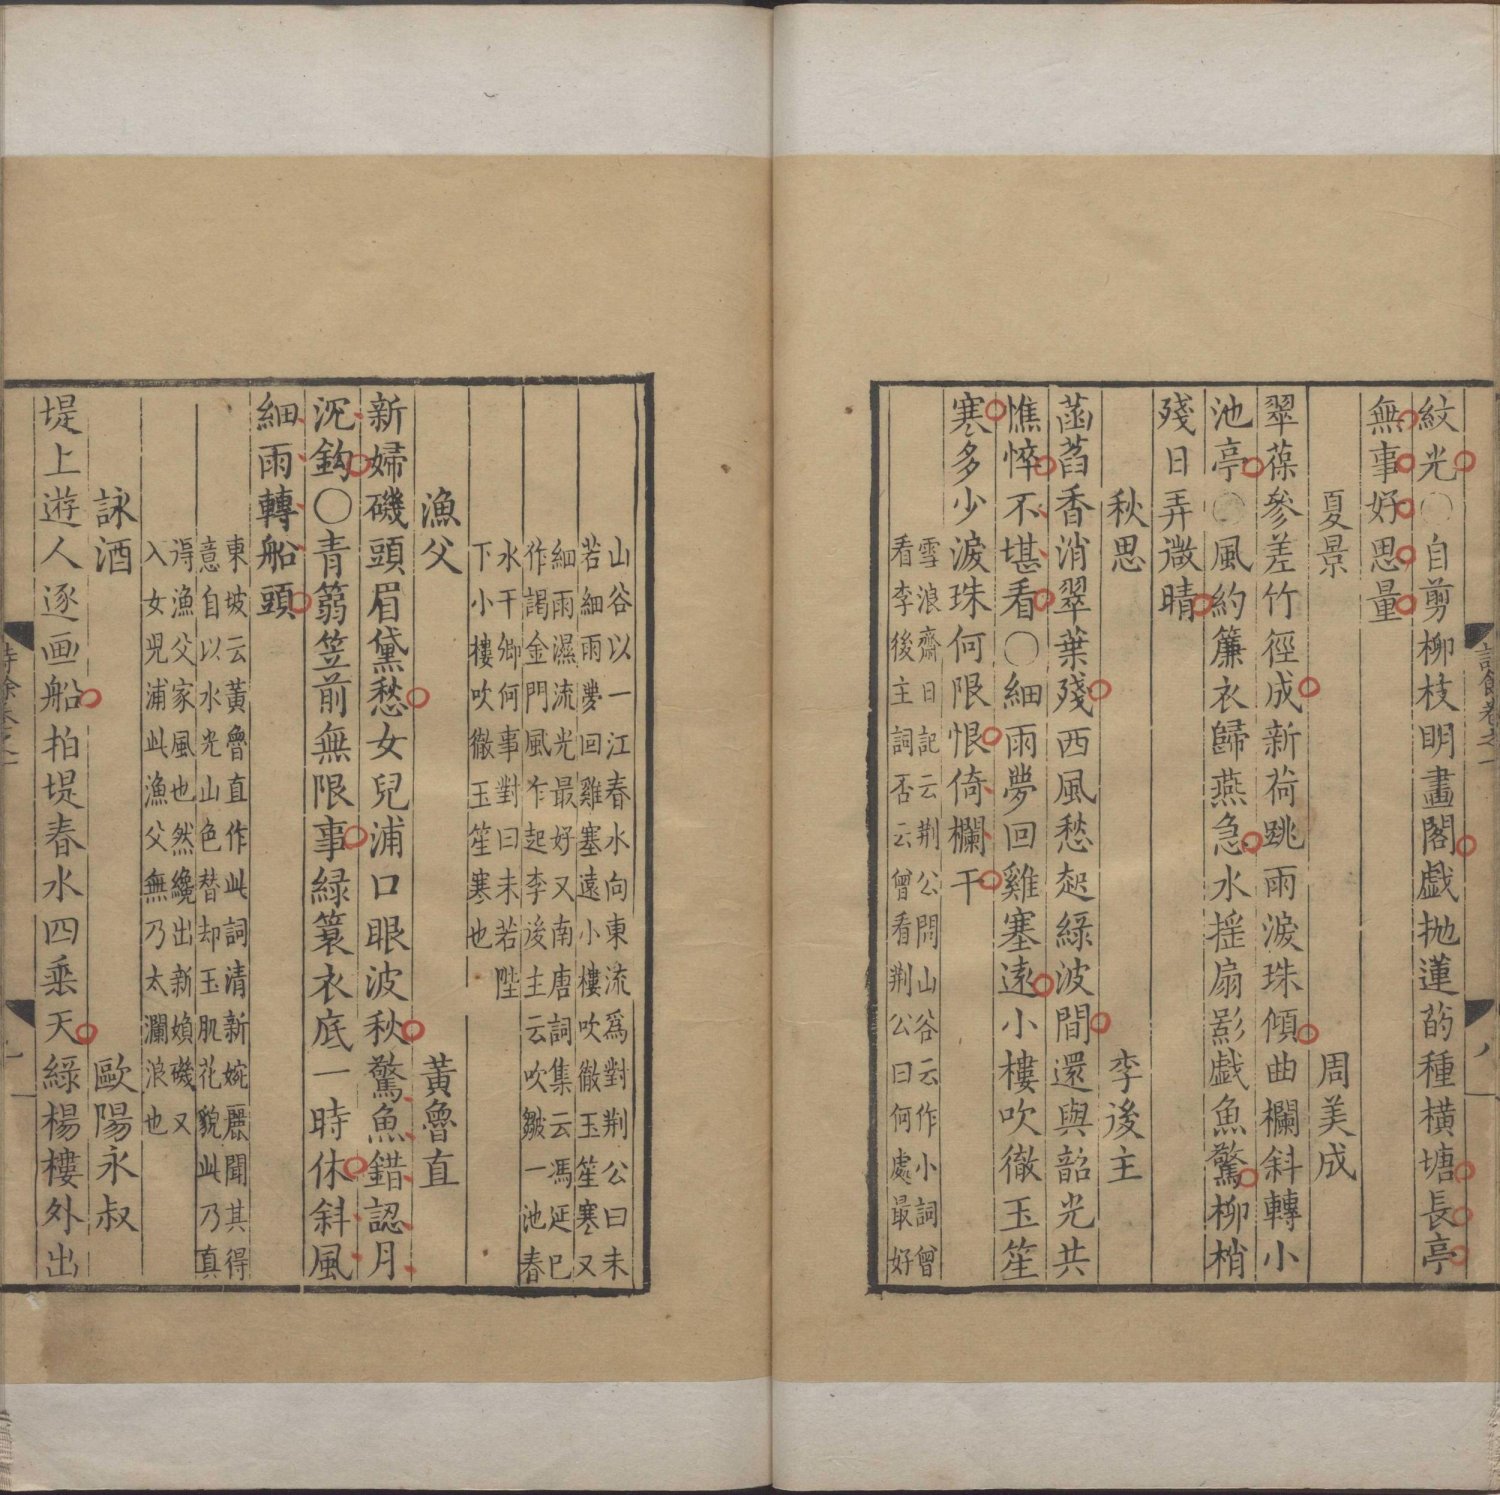 紋光〇自剪柳枝明畫閣戯抛蓮菂種橫塘長亭
無事好思量
夏景 周美成
翠葆參差竹徑成新荷跳雨淚珠傾曲欄斜轉小
池亭〇風約簾衣歸燕急水摇扇影戯魚驚柳梢
殘日弄微晴
秋思 李後主
菡萏香消翠葉殘西風愁起綠波間還與韶光共
憔悴不堪看〇細雨夢回雞塞遠小樓吹徹玉笙
寒多少淚珠何限恨倚欄干
雪浪齋日記云荆公問山谷云作小詞曾
看李後主詞否云曾看荆公曰何處最好
山谷以一江春水向東流爲對荆公曰未
若細雨夢回雞塞遠小樓吹徹玉笙寒又
細雨濕流光最好又南唐詞集云馮延巳
作謁金門風乍起李後主云吹皺一池春
水干卿何事對曰未若陛
下小樓吹徹玉笙寒也
漁父 黃魯直
新婦磯頭眉黛愁女兒浦口眼波秋驚魚錯認月
沉鈎〇青篛笠前無限事緑簑衣底一時休斜風
細雨轉船頭
東坡云黃魯直作此詞清新婉麗聞其得
意自以水光山色替却玉肌花貌此乃真
得漁父家風也然纔出新婦磯又
入女兒浦此漁父無乃太瀾浪也
詠酒 歐陽永叔
堤上遊人逐画船拍堤春水四乘天綠楊樓外出